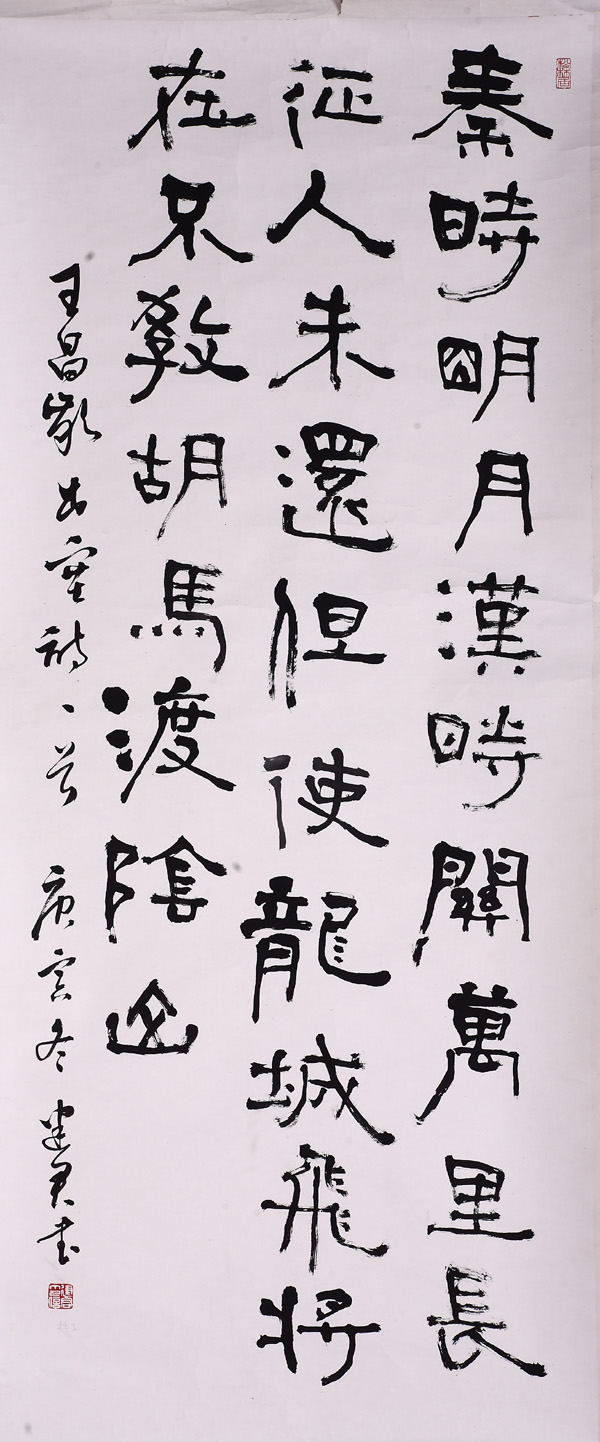 秦時明月漢時關萬里長
征人未還但使龍城飛将
在只教胡馬渡陰山
王昌齡出塞詩一首 庚寅冬 建君书